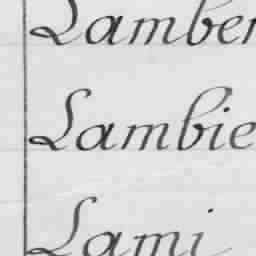 Lamber
Lambie
Lami